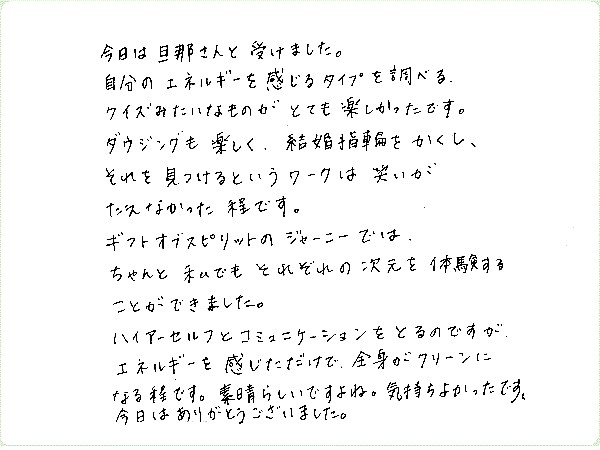 今日は旦那さんと受けました。
自分のエネルギーを感じるタイプを調べる、
クイズみたいなものがとても楽しかったです。
ダウジングも楽しく、結婚指輪をかくし、
それを見つけるというワークは笑いが
たえなかった程です。
ギフトオブスピリットのジャーニーでは、
ちゃんと私でもそれぞれの次元を体験する
ことができました。
ハイアーセルフとコミュニケーションをとるのですが、
エネルギーを感じただけで、全身がクリーンに
なる程です。素晴らしいですよね。気持ちよかったです。
今日はありがとうございました。